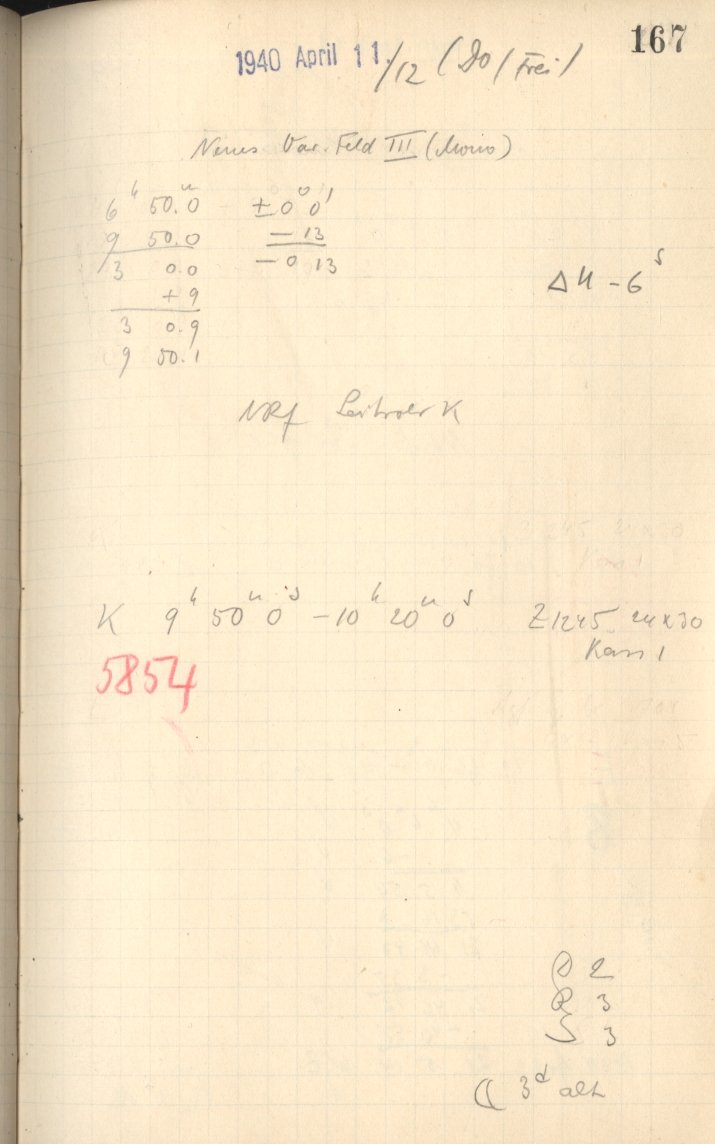 167
1940 April 11./12 (Do/Frei)
Neues Var. Feld III (Mono)
6ʰ 50.ᵐ0 ±0° 0'
9 50.0 — 13
3 0.0 — 0 13
+9
3 0.9
9 50.1
ΔU -6ˢ
NRf Leitrohr K
K 9ʰ 50ᵐ 0ˢ - 10ʰ 20ᵐ 0ˢ Z1245 24x30
Kass 1
5854
D 2
R 3
S 3
☾ 3ᵈ alt